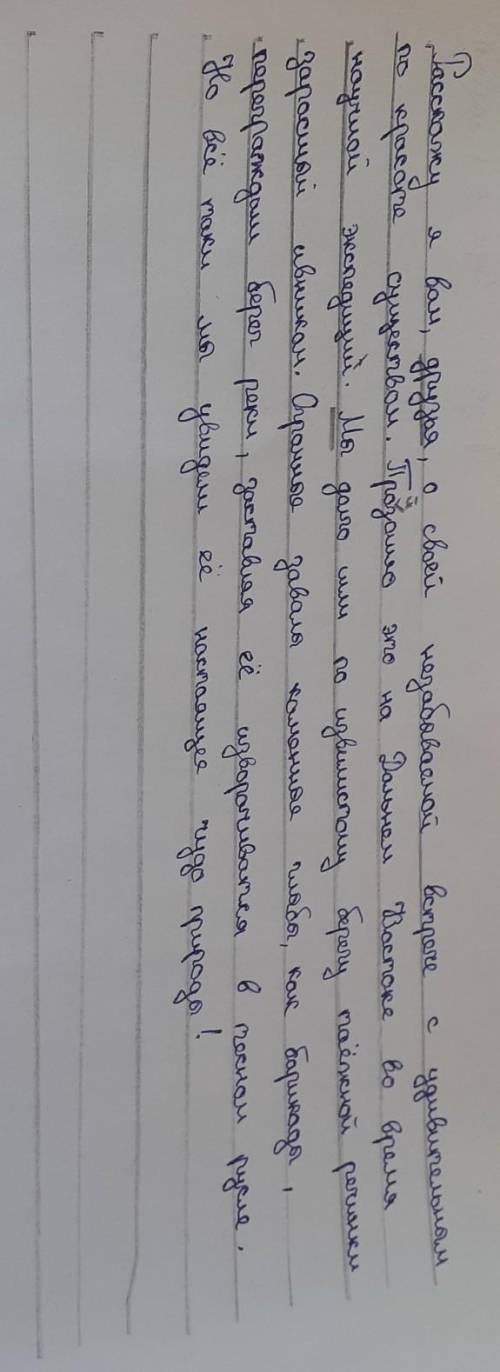 Расскажу я вам, друзья, о своей незабываемой встрече с удивительным
по красоте существом. Произошло это на Дальнем Востоке во время
научной экспедиции. Мы долго шли по извилистому берегу таёжной речонки
заросшей ивником. Огромные завалы каменные глыбы, как барикады,
переграждали берег реки, заставляя её изворачиватся в тесном русле.
Но всё таки мы увидели её настоящее чудо природы!